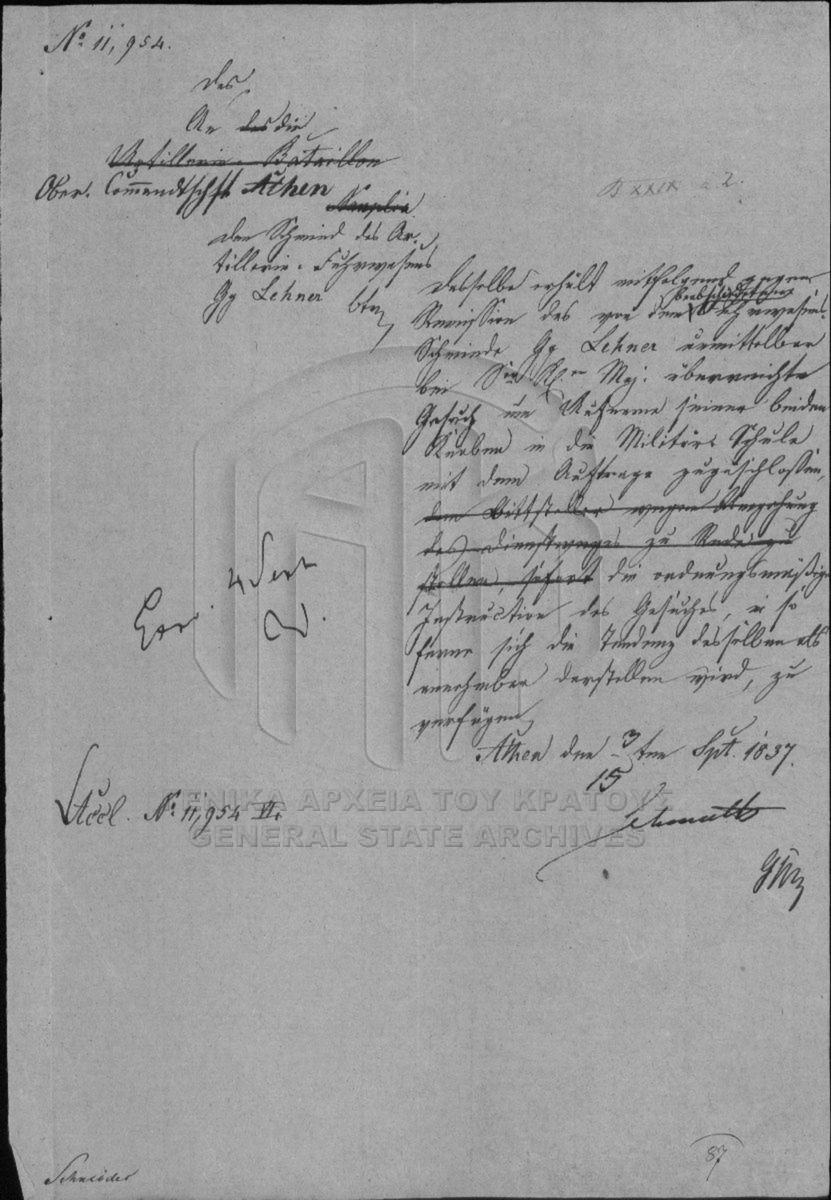 No. 11,954.
Das
An das die
Artillerie-Bataillon
Ober-Commandtschft Athen
Nauplia
B XXIX a 2.
Den Schmied des Ar-
tillerie-Fuhrwesens
Gg Lehner btr
Dasselbe erhält mitfolgend gegen
Remission das von dem Fuhrwesens-
Schmiede Gg Lehner unmittelbar
bei Sr. Kgn. Maj. überreichte
Gesuch um Aufname seiner beiden
Knaben in die Militär-Schule
mit dem Auftrage zugeschlossen,
den Bittsteller wegen Umgehung
des Dienstweges zu Rede zu
stellen, sofort die ordnungsmäßige
Instruction des Gesuches, in so
ferne sich die Tendenz desselben als
annehmbar darstellen wird, zu
verfügen.
Athen den 3ten Spt. 1837.
15
Exp. 4 Sept
Addl. No. 11,954 VI.
Schmaltz
ΓΕΝΙΚΑ ΑΡΧΕΙΑ ΤΟΥ ΚΡΑΤΟΥΣ
GENERAL STATE ARCHIVES
Schneider
87